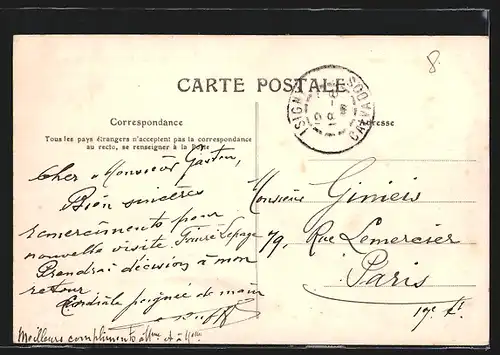 8.
CARTE POSTALE
ISIGNY
CALVADOS
Correspondance
Adresse
Tous les pays étrangers n'acceptent pas la correspondance
au recto, se renseigner à la Poste
Cher Monsieur Gaston,
Bien sincères
remerciments pour
nouvelle visite Fauré Lepage
Prendrai décision à mon
retour
Cordiale poignée de main
Meilleurs compliments à
Monsieur
79, Rue Lemercier
Paris
17e